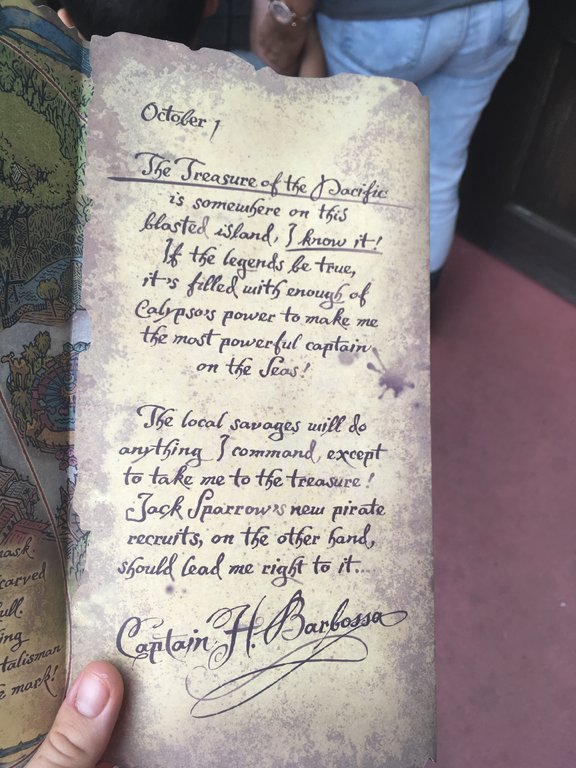 October 1
The Treasure of the Pacific
is somewhere on this
blasted island, I know it!
If the legends be true,
it's filled with enough of
Calypso's power to make me
the most powerful captain
on the Seas!
The local savages will do
anything I command, except
to take me to the treasure!
Jack Sparrow's new pirate
recruits, on the other hand,
should lead me right to it...
Captain H. Barbossa
mask.
carved
ull.
ing
talisman
e mark!